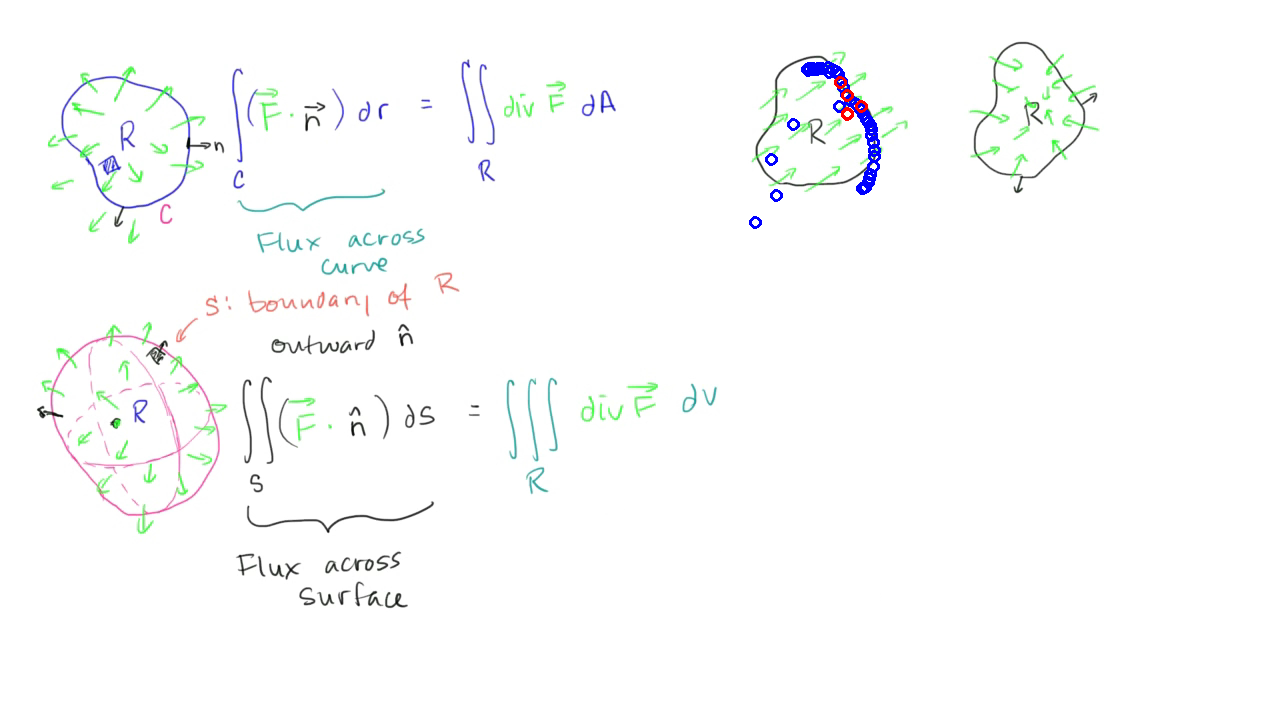 R
n
C
∫_C (F⃗ · n⃗) dr = ∬_R div F⃗ dA
Flux across
curve
S: boundary of R
outward n̂
R
∬_S (F⃗ · n̂) ds = ∭_R div F⃗ dv
Flux across
surface
R
R